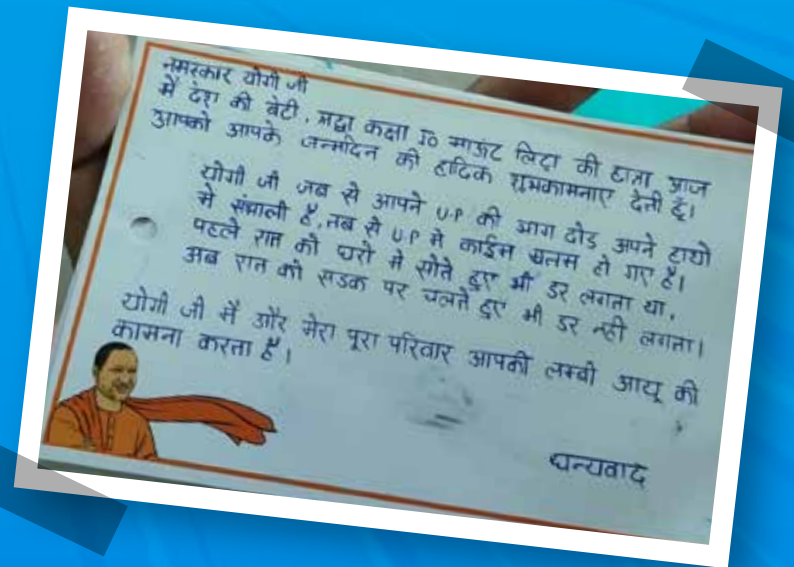 नमस्कार योगी जी
मैं देश की बेटी, श्रद्धा कक्षा 10 माऊंट लिट्रा की छात्रा आज
आपको आपके जन्मदिन की हार्दिक शुभकामनाए देती हूँ।
योगी जी जब से आपने U.P की भाग दोड़ अपने हाथो
मे संभाली है, तब से U.P मे काईम खतम हो गए है।
पहले रात को घरो मे सोते हुए भी डर लगता था,
अब रात को सडक पर चलते हुए भी डर नही लगता।
योगी जी मैं और मेरा पूरा परिवार आपकी लम्बी आयू की
कामना करता है।
धन्यवाद